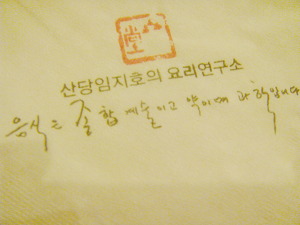 산당임지호의 요리연구소
음식은 종합예술이고 약이며 과학입니다